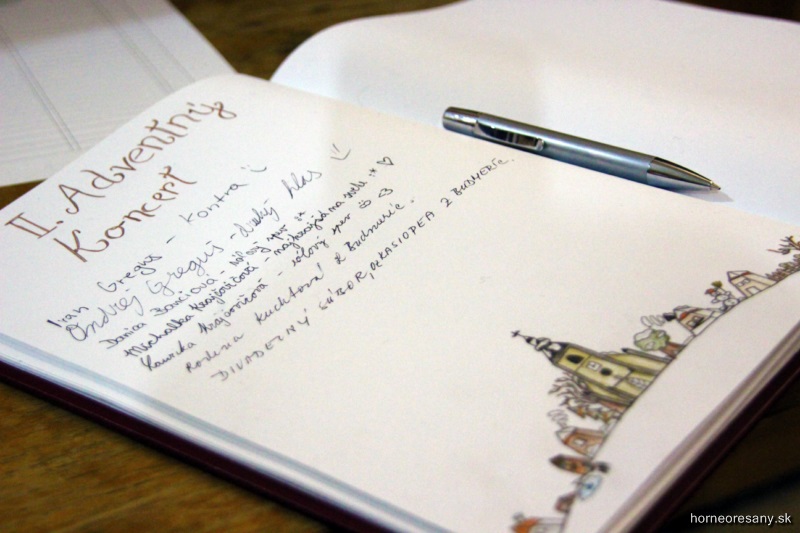 II. Adventný
Koncert
Ivan Greguš - kontra :)
Ondrej Greguš - druhý hlas :)
Danica Bančiová - sólový spev
Michalka Krajčovičová - najkrajšia na svete :* ♡
Laurika Krajčovičová - sólový spev
Rodina Kuchtová z Budmeríc.
DIVADELNÝ SÚBOR, OKASIOPEA Z BUDMERÍC.
horneoresany.sk